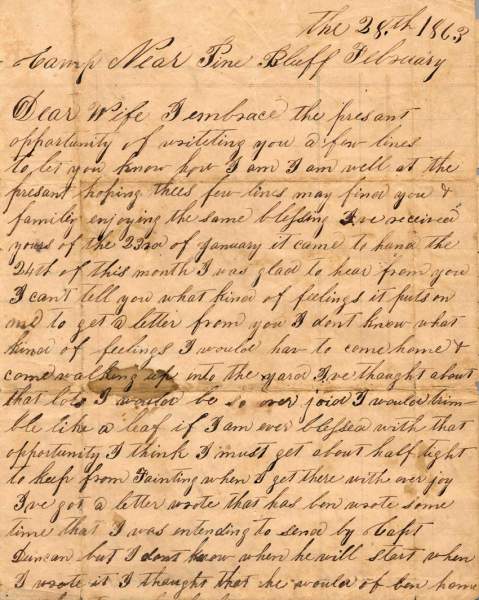 the 28.th 1863
Camp Near Pine Bluff February
Dear Wife I embrace the presant
opportunity of writeting you a few lines
to let you know how I am I am well at the
presant hoping thees few lines may find you &
family enjoying the same blessing I've received
yours of the 23rd of January it came to hand the
24th of this month I was glad to hear from you
I can't tell you what kind of feelings it puts on
me to get a letter from you I dont know what
kind of feelings I would hav to come home &
come walking up into the yard I,ve thought about
that lots I would be so over joid I would trim-
ble like a leaf if I am ever blessed with that
opportunity I think I must get about half tight
to keep from Fainting when I get there with over joy
I've got a letter wrote that has ben wrote some
time that I was entending to send by Capt
Duncan but I dont know when he will start when
I wrote it I thought that he would of ben home